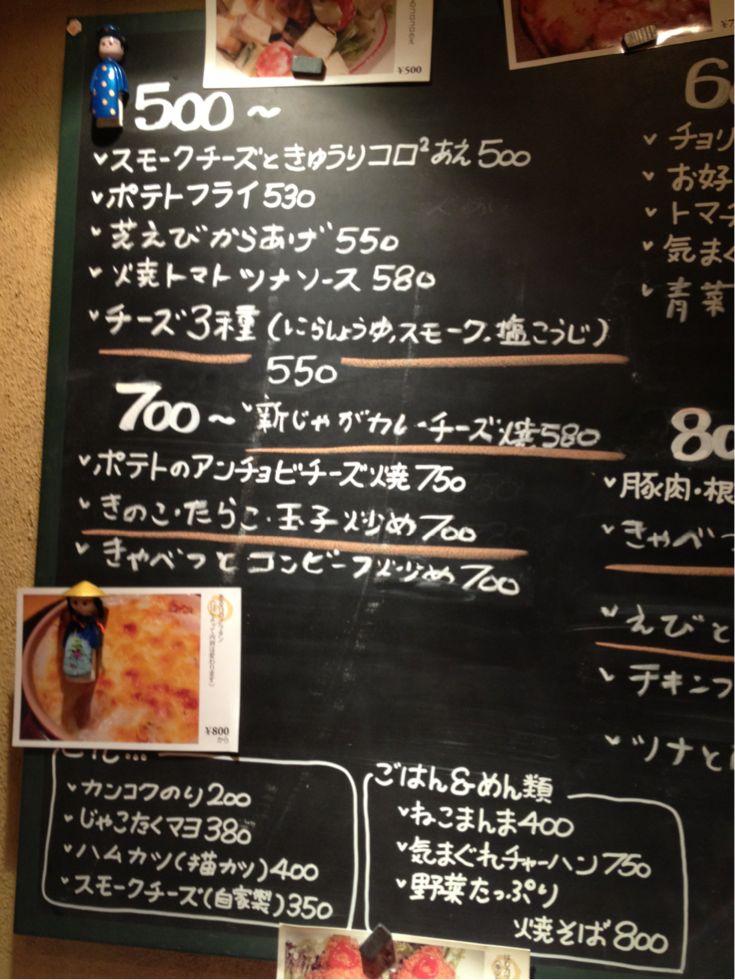 ¥500
500～
スモークチーズときゅうりコロ²あえ500
ポテトフライ530
芝えびからあげ550
火焼トマトツナソース580
チーズ3種(にらしょうゆ,スモーク,塩こうじ)
550
700～
新じゃがカレーチーズ焼580
ポテトのアンチョビチーズ火焼750
きのこ・たらこ・玉子炒め700
きゃべつとコンビーフ炒め700
¥800
から
カンコクのり200
じゃこたくマヨ380
ハムカツ(猫カツ)400
スモークチーズ(自家製)350
ごはん&めん類
ねこまんま400
気まぐれチャーハン750
野菜たっぷり
焼そば800
チョリ
お好
トマ
気まぐ
青菜
豚肉・根
きゃべつ
えびと
チキンフ
ツナと